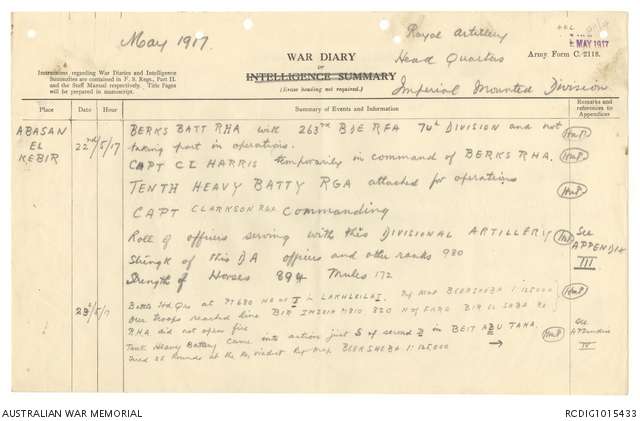 May 1917.
Royal Artillery
MAY 1917
WAR DIARY
or
INTELLIGENCE SUMMARY
(Erase heading not required.)
Head Quarters
Army Form C. 2118.
Imperial Mounted Division
Instructions regarding War Diaries and Intelligence
Summaries are contained in F. S. Regs., Part II.
and the Staff Manual respectively. Title Pages
will be prepared in manuscript.
Place
Date
Hour
Summary of Events and Information
Remarks and
references to
Appendices
ABASAN
EL
KEBIR
22nd/5/17
BERKS BATT RHA with 263rd BDE RFA 74th DIVISION and not
taking part in operations.
CAPT CL HARRIS temporarily in command of BERKS RHA.
TENTH HEAVY BATTY RGA attached for operations
CAPT CLARKSON RGA Commanding
Roll of officers serving with this DIVISIONAL ARTILLERY
See
APPENDIX
III
Strength of this DA officers and other ranks 980
Strength of Horses 894 Mules 172
23d/5/17
Battle Hd Qrs at
Ref Map BEERSHEBA 1:125000
Our troops reached line BIR
RHA did not open fire
Tenth Heavy Battery came into action just S of second B in BEIT ABU TAHA.
fired 25 rounds at the Ry viaduct Ref Map BEERSHEBA 1:125000
See
Appendix
IV
AUSTRALIAN WAR MEMORIAL
RCDIG1015433